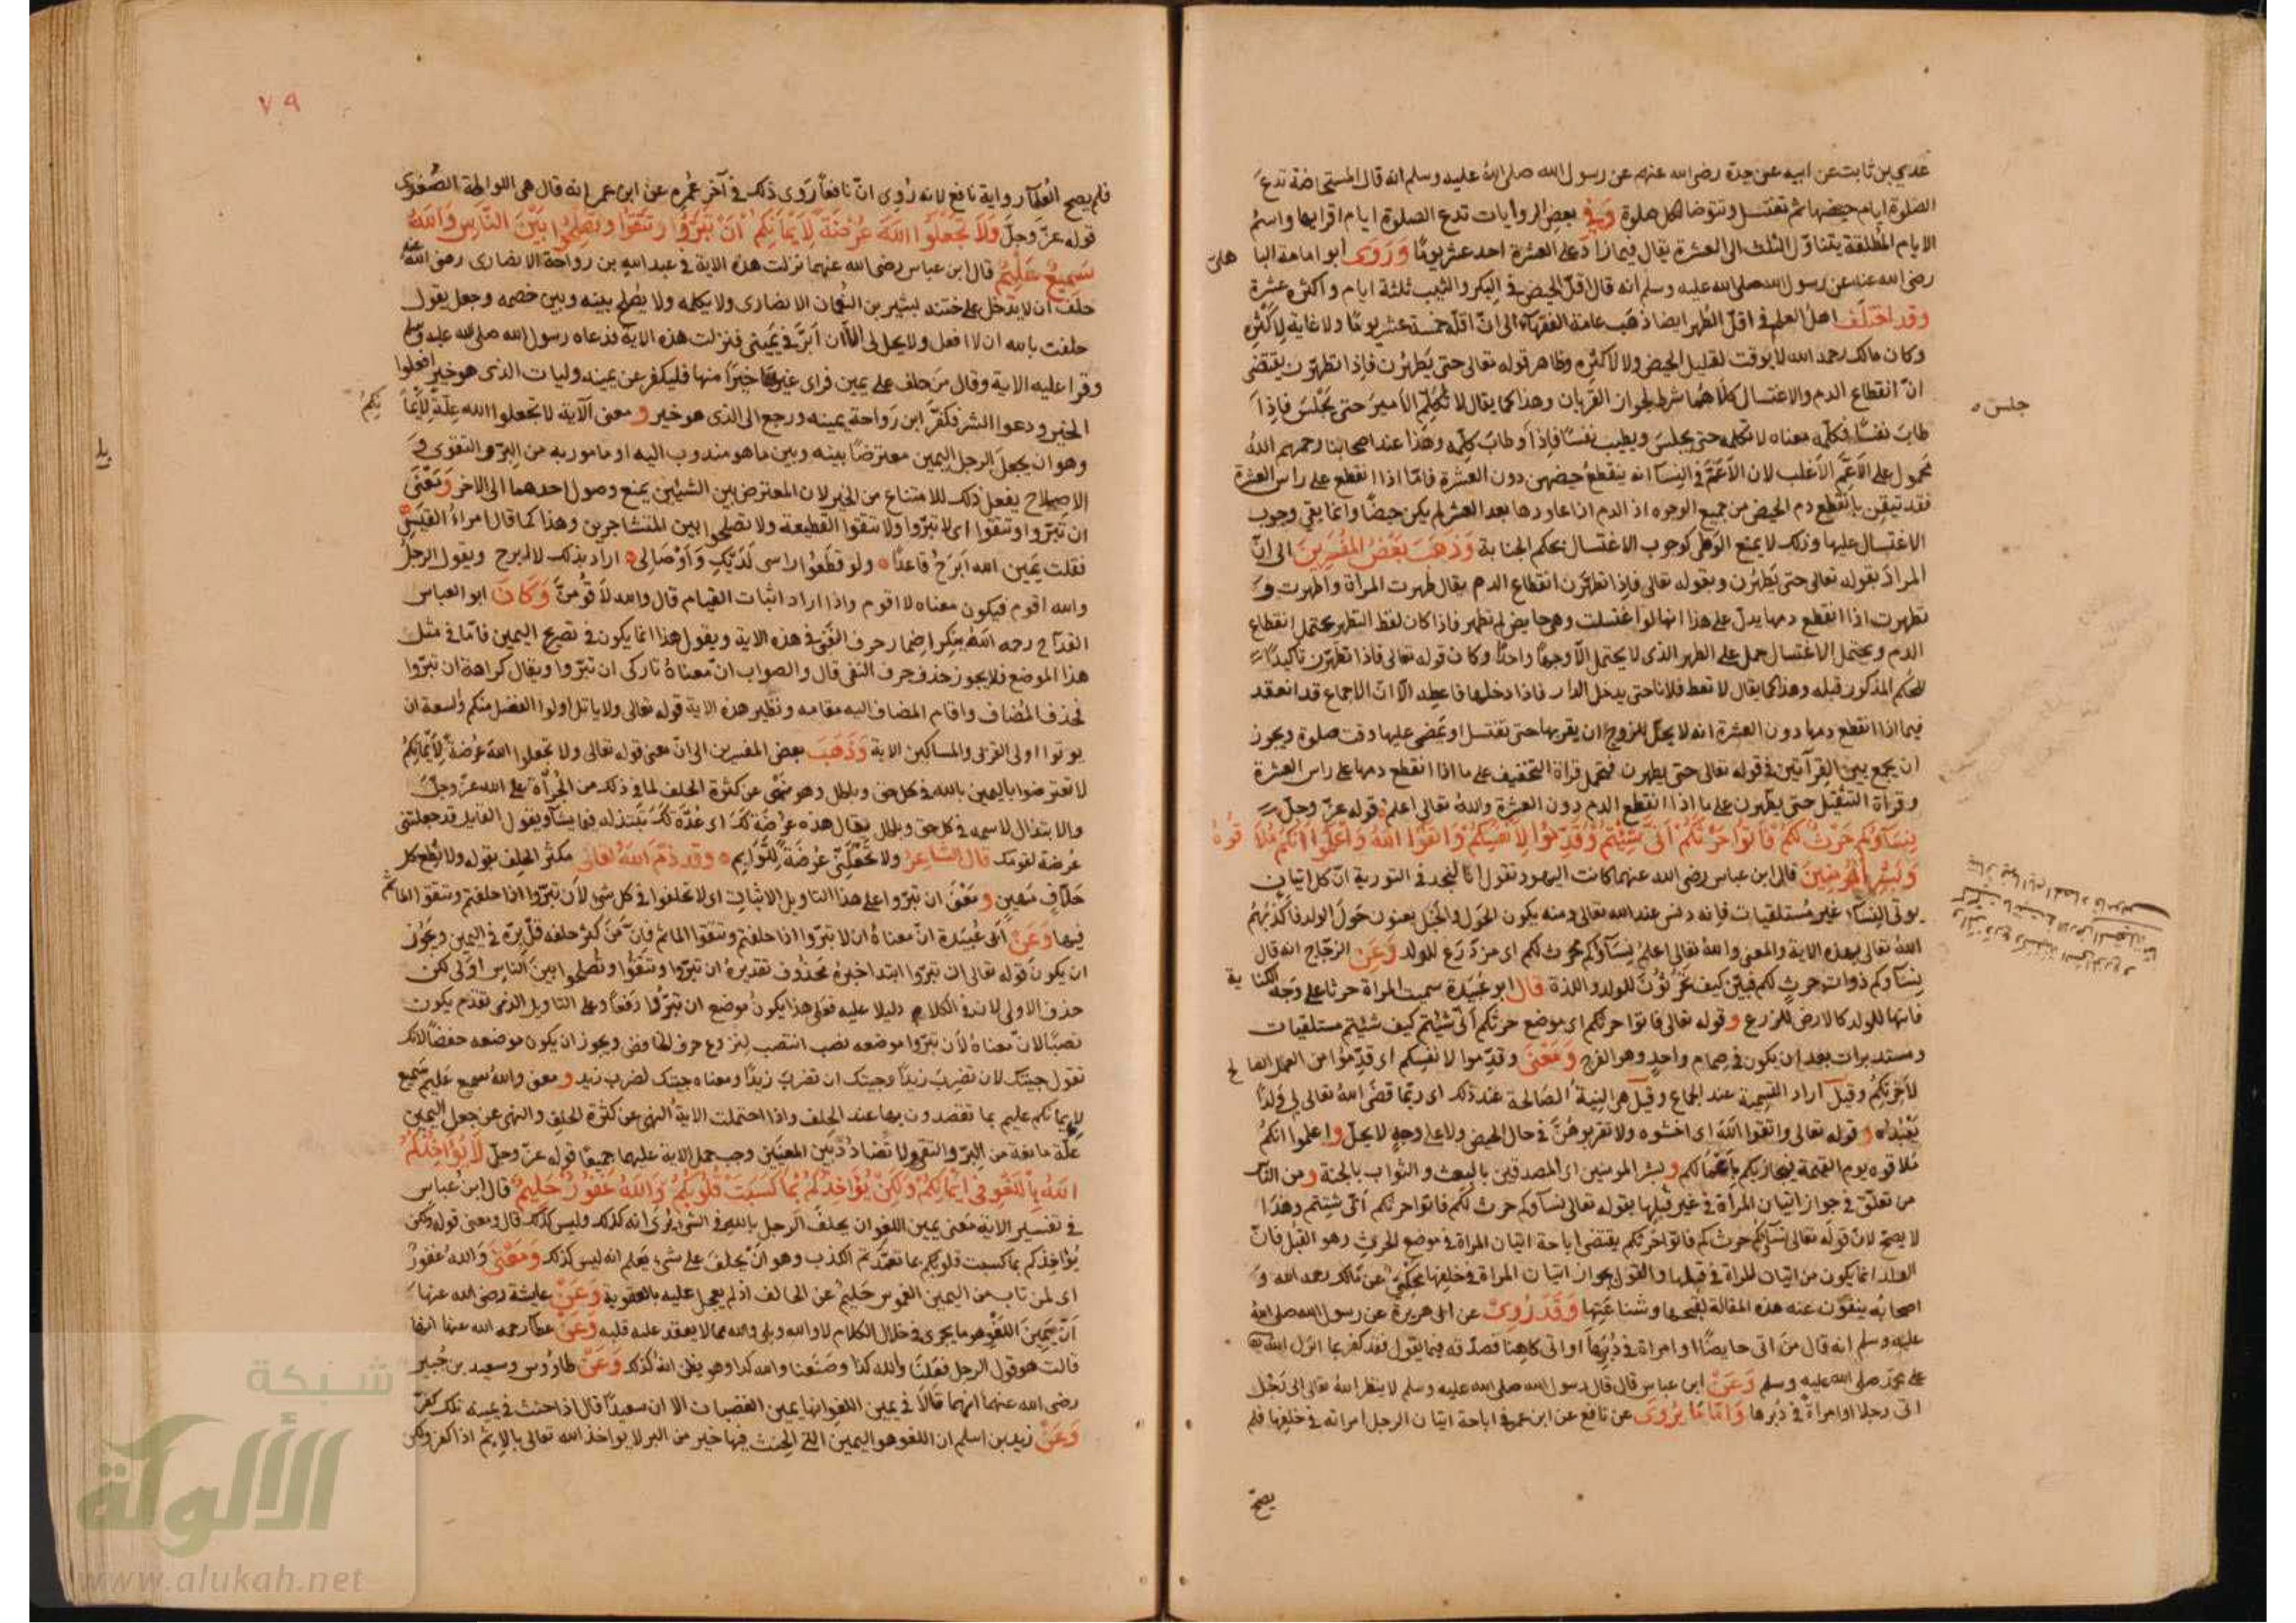 عدي بن ثابت عن ابيه عن جده رضي الله عنهم عن رسول الله صلى الله عليه وسلم انه قال المستحاضة تدع
الصلوة ايام حيضها ثم تغتسل وتتوضا لكل صلوة وفي بعض الروايات تدع الصلوة ايام اقرايها واسم
الايام المطلقة يتناول الثلث الى العشرة يقال فيما زاد على العشرة احد عشر يوما وروى ابو امامة الباهلى
رضي الله عنه عن رسول الله صلى الله عليه وسلم انه قال اقل الحيض في البكر والثيب ثلثة ايام واكثره عشرة
وقد اختلف اهل العلم في اقل الطهر ايضا ذهب عامة الفقهاء الى ان اقله خمسة عشر يوما ولا غاية لاكثره
وكان مالك رحمه الله لا يوقت لقليل الحيض ولا لاكثره وظاهر قوله تعالى حتى يطهرن فاذا تطهرن يقتضى
ان انقطاع الدم والاغتسال كلاهما شرط لجواز القربان وهذا كما يقال لا تكلم الامير حتى يجلس فاذا
جلس
طاب نفسا فكلمه معناه لا تكلمه حتى يجلس ويطيب نفسا فاذا وطاب كلمه وهذا عند اصحابنا رحمهم الله
محمول على الاعم الاغلب لان الاعم في النساء انه ينقطع حيضهن دون العشرة فاما اذا انقطع على راس العشرة
فقد تيقن بانقطع دم الحيض من جميع الوجوه اذ الدم اذا عاودها بعد العشر لم يكن حيضا وانما بقي وجوب
الاغتسال عليها وذلك لا يمنع الوطى كوجوب الاغتسال بحكم الجنابة وذهب بعض المفسرين الى ان
المراد بقوله تعالى حتى يطهرن وبقوله تعالى فاذا تطهرن انقطاع الدم يقال طهرت المراة واطهرت و
تطهرت اذا انقطع دمها يدل على هذا انها لو اغتسلت وهي حايض لم تطهر فاذا كان لفظ التطهر يحتمل انقطاع
الدم ويحتمل الاغتسال حمل على الطهر الذي لا يحتمل الا وجها واحدا وكان قوله تعالى فاذا تطهرن تاكيدا
للحكم المذكور قبله وهذا كما يقال لا تعط فلانا حتى يدخل الدار فاذا دخلها فاعطه الا ان الاجماع قد انعقد
فيما اذا انقطع دمها دون العشرة انه لا يحل للزوج ان يقربها حتى تغتسل او يمضي عليها وقت صلوة ويجوز
ان يجمع بين القرآتين في قوله تعالى حتى يطهرن فتحمل قراة التخفيف على ما اذا انقطع دمها على راس العشرة
وقراة التثقيل حتى يطهرن على ما اذا انقطع الدم دون العشرة والله تعالى اعلم قوله عز وجل
نساؤكم حرث لكم فاتوا حرثكم انى شئتم وقدموا لانفسكم واتقوا الله واعلموا انكم ملاقوه
وبشر المؤمنين قال ابن عباس رضي الله عنهما كانت اليهود تقول انا لنجد في التورية ان كل اتيان
يوتى النساء غير مستلقيات فانه دنس عند الله تعالى ومنه يكون الحول والخبل يعنون حول الولد فاكذبهم
الله تعالى بهذه الاية والمعنى والله تعالى اعلم نساؤكم حرث لكم اى مزدرع للولد وعن الزجاج انه قال
نساؤكم ذوات حرث لكم فبين كيف تحرثون للولد واللذة قال ابو عبيدة سميت المراة حرثا على وجه الكناية
فانها للولد كالارض للزرع وقوله تعالى فاتوا حرثكم اى موضع حرثكم انى شئتم كيف شئتم مستلقيات
ومستدبرات بعد ان يكون في صمام واحد وهو الفرج ومعنى وقدموا لانفسكم اى قدموا من العمل الصالح
لاخرتكم وقيل اراد التسمية عند الجماع وقيل هى النية الصالحة عند ذلك اى ربما قضى الله تعالى لى ولدا
يعبد الله وقوله تعالى واتقوا الله اى اخشوه ولا تقربوهن في حال الحيض ولا على وجه لا يحل واعلموا انكم
ملاقوه يوم القيمة فيجازيكم باعمالكم وبشر المومنين اى المصدقين بالبعث والثواب بالجنة ومن الناس
من تعلق في جواز اتيان المراة في غير قبلها بقوله تعالى نساؤكم حرث لكم فاتوا حرثكم انى شئتم وهذا
لا يصح لان قوله تعالى نساؤكم حرث لكم فاتوا حرثكم يقتضى اباحة اتيان المراة في موضع الحرث وهو القبل فان
الولد انما يكون من اتيان المراة في قبلها والقول بجواز اتيان المراة في خلفها يحكى عن مالك رحمه الله و
اصحابه ينفون عنه هذه المقالة لقبحها وشناعتها وقد روى عن ابى هريرة عن رسول الله صلى الله
عليه وسلم انه قال من اتى حايضا او امراة في دبرها او اتى كاهنا فصدقه فيما يقول فقد كفر بما انزل الله
على محمد صلى الله عليه وسلم وعن ابن عباس قال قال رسول الله صلى الله عليه وسلم لا ينظر الله تعالى الى رجل
اتى رجلا او امراة في دبرها واما ما يروى عن نافع عن ابن عمر في اباحة اتيان الرجل امراته في خلفها فلم
يصح
٧٩
فلم يصح العلماء رواية نافع لانه روى ان نافعا روى ذلك في آخر عمره عن ابن عمر انه قال هى اللواطة الصغرى
قوله عز وجل ولا تجعلوا الله عرضة لايمانكم ان تبروا وتتقوا وتصلحوا بين الناس والله
سميع عليم قال ابن عباس رضي الله عنهما نزلت هذه الاية في عبد الله بن رواحة الانصارى رضي الله عنه
حلف ان لا يدخل على ختنه بشير بن النعمان الانصارى ولا يكلمه ولا يصلح بينه وبين خصمه وجعل يقول
حلفت بالله ان لا افعل ولا يحل لى الا ان ابر في يمينى فنزلت هذه الاية فدعاه رسول الله صلى الله عليه وسلم
وقرا عليه الاية وقال من حلف على يمين فراى غيرها خيرا منها فليكفر عن يمينه وليات الذى هو خير افعلوا
الخير ودعوا الشر فكفر ابن رواحة يمينه ورجع الى الذى هو خير و معنى الآية لا تجعلوا الله علة لايمانكم
وهو ان يجعل الرجل اليمين معترضا بينه وبين ما هو مندوب اليه او مامور به من البر والتقوى و
الاصلاح يفعل ذلك للامتناع من الخير لان المعترض بين الشيئين يمنع وصول احدهما الى الاخر ومعنى
ان تبروا وتتقوا اى لا تبروا ولا تتقوا القطيعة ولا تصلحوا بين المتشاجرين وهذا كما قال امراء القيس
فقلت يمين الله ابرح قاعدا ولو قطعوا راسى لديك واوصالى اراد بذلك لا ابرح ويقول الرجل
والله اقوم فيكون معناه لا اقوم واذا اراد اثبات القيام قال والله لاقومن وكان ابو العباس
رحمه الله ينكر اضمار حرف النفى في هذه الاية ويقول هذا انما يكون في تصريح اليمين فاما في مثل
هذا الموضع فلا يجوز حذف حرف النفى قال والصواب ان معناه تاركى ان تبروا ويقال كراهة ان تبروا
فحذف المضاف واقام المضاف اليه مقامه ونظير هذه الاية قوله تعالى ولا ياتل اولوا الفضل منكم والسعة ان
يوتوا اولى القربى والمساكين الاية وذهب بعض المفسرين الى ان معنى قوله تعالى ولا تجعلوا الله عرضة لايمانكم
لا تعترضوا باليمين بالله في كل حق وباطل وهو نهى عن كثرة الحلف لما في ذلك من الجرأة على الله عز وجل
والابتذال لاسمه في كل حق وباطل يقال هذه عرضة لك اى عدة لك تبتذله فيما يشآ ويقول القايل قد جعلتنى
عرضة لقومك قال الشاعر ولا تجعلنى عرضة للوايم وقد ذم الله تعالى مكثر الحلف بقوله ولا تطع كل
حلاف مهين ومعنى ان تبروا على هذا التاويل الاثبات اى لا تحلفوا في كل شى لان تبروا اذا حلفتم وتتقوا الماثم
فيها وعن ابى عبيدة ان معناه ان لا تبروا اذا حلفتم وتتقوا الماثم فان من كثر حلفه قل بره في اليمين ويجوز
ان يكون قوله تعالى ان تبروا ابتدا خبره محذوف تقديره ان تبروا وتتقوا وتصلحوا بين الناس اولى لكن
حذف الاولى لان في الكلام دليلا عليه فعلى هذا يكون موضع ان تبروا رفعا وعلى التاويل الذى تقدم يكون
نصبا لان معناه لان تبروا موضعه نصب انتصب لنزوع حرف الخافض ويجوز ان يكون موضعه خفضا لانك
تقول جيتك لان تضرب زيدا وجيتك ان تضرب زيدا ومعناه جيتك لضرب زيد ومعنى والله سميع عليم سميع
لايمانكم عليم بما تقصدون بها عند الحلف واذا احتملت الاية النهى عن كثرة الحلف والنهى عن جعل اليمين
علة مانعة من البر والتقوى ولا تضاد بين المعنيين وجب حمل الاية عليهما جميعا قوله عز وجل لا يؤاخذكم
الله باللغو في ايمانكم ولكن يؤاخذكم بما كسبت قلوبكم والله غفور حليم قال ابن عباس
في تفسير الاية معنى يمين اللغو ان يحلف الرجل بالله في الشى يرى انه كذلك وليس كذلك قال ومعنى قوله ولكن
يؤاخذكم بما كسبت قلوبكم بما تعمدتم الكذب وهو ان يحلف على شى يعلم انه ليس كذلك ومعنى والله غفور
اى لمن تاب من اليمين الغموس حليم عن الحالف اذ لم يعجل عليه بالعقوبة وعن عايشة رضي الله عنها
ان يمين اللغو هو ما يجرى في خلال الكلام لا والله وبلى والله مما لا يعقد عليه قلبه وعن عطا رحمه الله عنها انها
قالت هو قول الرجل فعلنا والله كذا وصنعنا والله كذا وهو يظن انه كذلك وعن طاوس وسعيد بن جبير
رضي الله عنهما انهما قالا في يمين اللغو انها يمين الغضبان الا ان سعيدا قال اذا حنث في يمينه تلك كفر
وعن زيد بن اسلم ان اللغو هو اليمين التى الحنث فيها خير من البر لا يواخذ الله تعالى بالاثم اذا كفر ولكن
شبكة
الألوكة
www.alukah.net